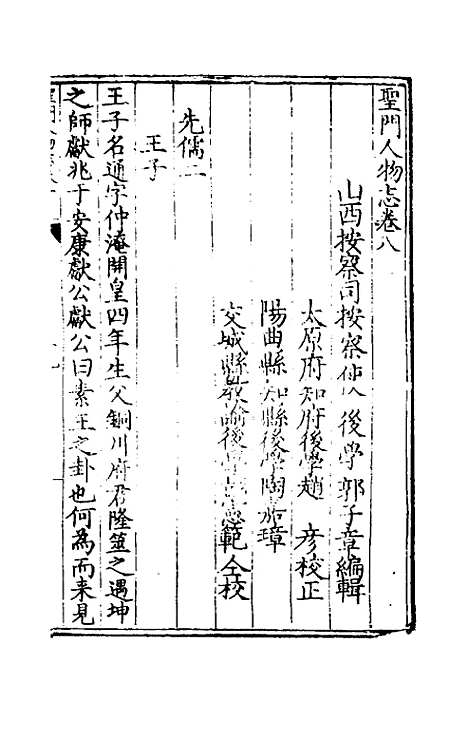 聖門人物志卷八
山西按察司按察使後學郭子章編輯
太原府知府後學趙 彥校正
陽曲縣知縣後學陶嘉璋
交城縣教諭後學 憲範仝校
先儒二
王子
王子名通字仲淹開皇四年生父銅川府君隆筮之遇坤
之師獻兆于安康獻公獻公曰素王之卦也何為而来見